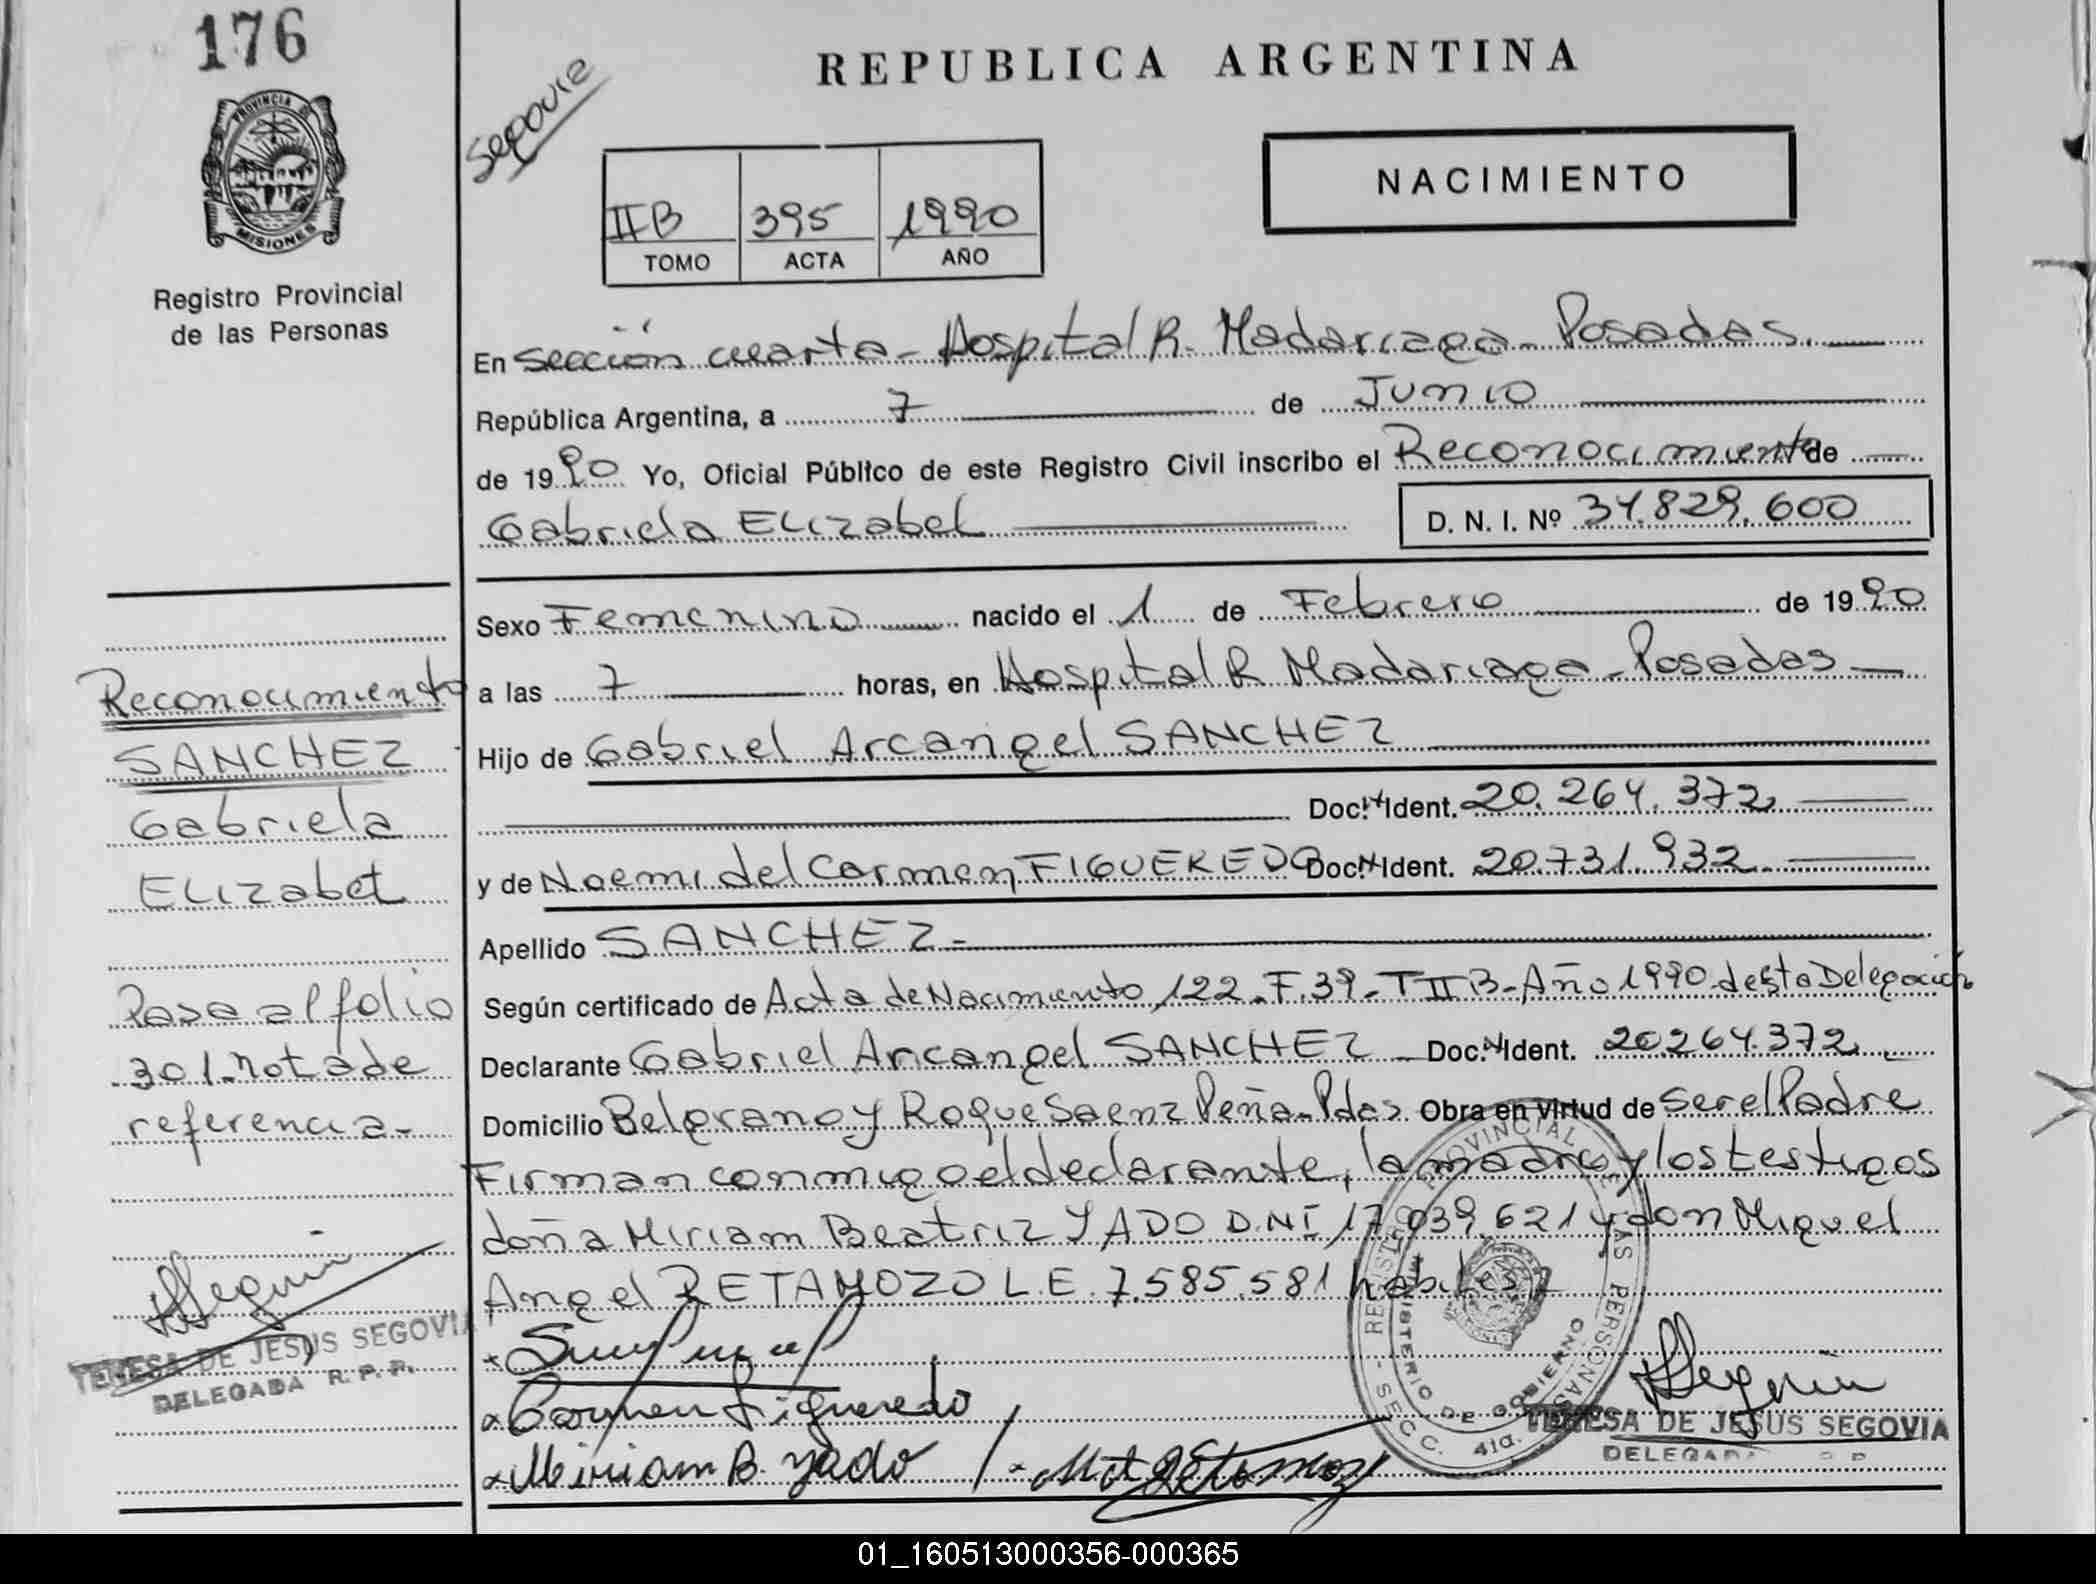 176
Segovia
REPUBLICA ARGENTINA
PROVINCIA DE
MISIONES
Registro Provincial
de las Personas
IIB 395 1990
TOMO ACTA AÑO
NACIMIENTO
En Sección cuarta - Hospital R. Madariaga - Posadas.
República Argentina, a 7 de Junio
de 1990 Yo, Oficial Público de este Registro Civil inscribo el Reconocimiento de
Gabriela Elizabet D. N. I. Nº 34.829.600
Sexo Femenino nacido el 1 de Febrero de 1990
a las 7 horas, en Hospital R Madariaga - Posadas
Hijo de Gabriel Arcangel SANCHEZ
Doc. Ident. 20.264.372
y de Noemi del Carmen FIGUEREDO Doc. Ident. 20.731.932
Apellido SANCHEZ -
Según certificado de Acta de Nacimiento 122 - F.39 - T II B - Año 1990 de esta Delegación
Declarante Gabriel Arcangel SANCHEZ Doc. Ident. 20264.372
Domicilio Belgrano y Roque Saenz Peña - Pdas Obra en virtud de ser el Padre
Firman conmigo el declarante, la madre y los testigos
doña Miriam Beatriz YADO D.NI 17.039.621 y don Miguel
Angel RETAMOZO L.E. 7.585.581 habiles
Carmen Figueredo
Miriam B. Yado
Reconocimiento
SANCHEZ
Gabriela
Elizabet
Pasa al folio
301 - Nota de
referencia -
TERESA DE JESUS SEGOVIA
DELEGADA R. P. P.
REGISTRO PROVINCIAL DE LAS PERSONAS - SECC. 4ta.
MINISTERIO DE GOBIERNO
TERESA DE JESUS SEGOVIA
DELEGADA
01_160513000356-000365